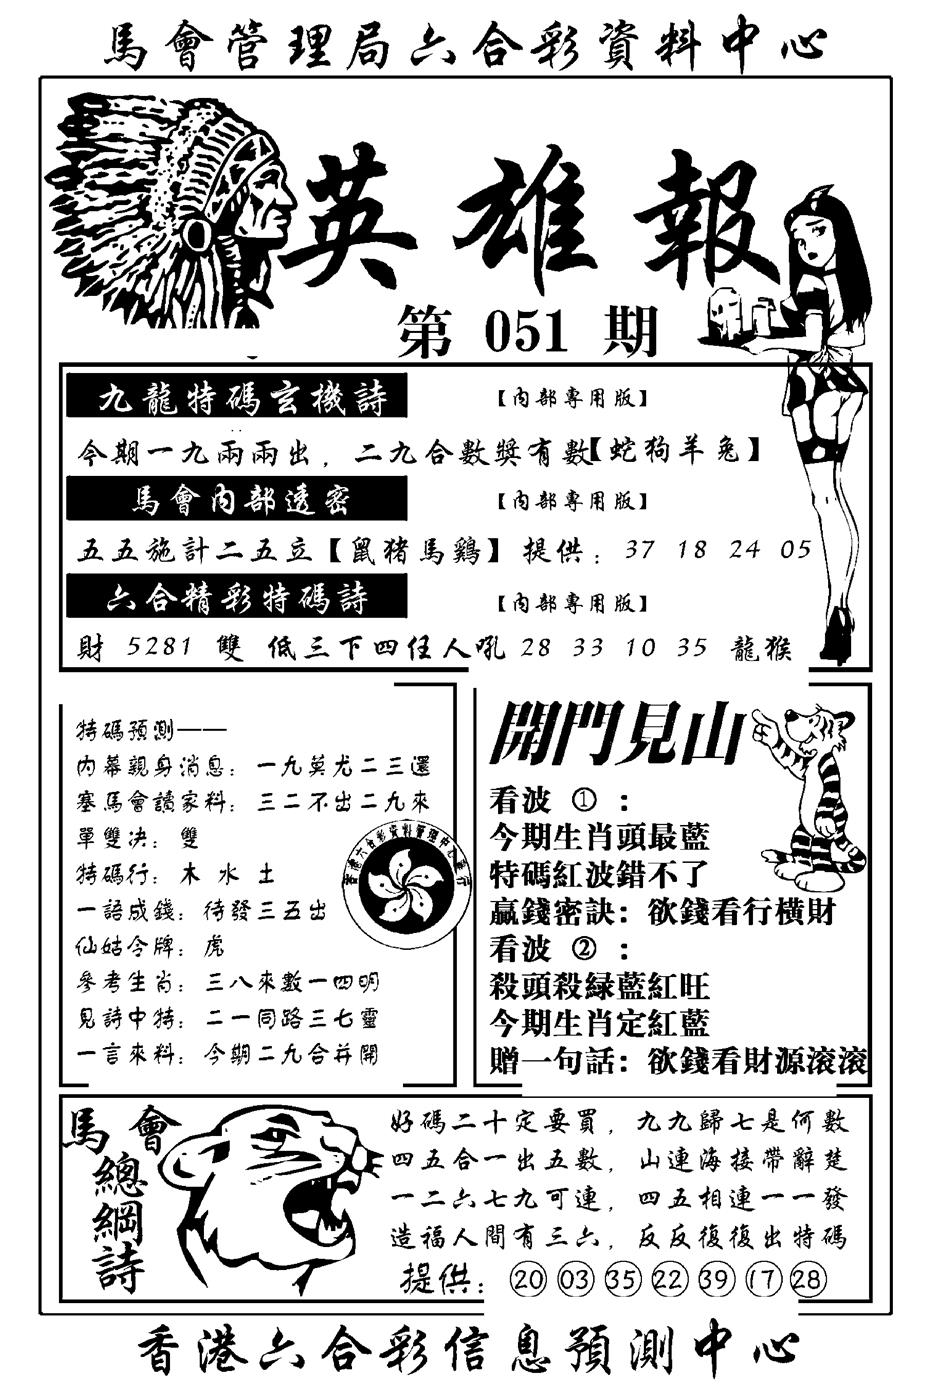 馬會管理局六合彩資料中心
英雄報
第 051 期
九龍特碼玄機詩 【內部專用版】
今期一九兩兩出，二九合數獎有數【蛇狗羊兔】
馬會內部透密 【內部專用版】
五五施計二五立【鼠猪馬鷄】 提供：37 18 24 05
六合精彩特碼詩 【內部專用版】
財 5281 雙 低三下四任人吼 28 33 10 35 龍猴
特碼預測——
內幕親身消息：一九莫尤二三還
塞馬會讀家料：三二不出二九來
單雙決：雙
特碼行：木 水 土
一語成錢：待發三五出
仙姑令牌：虎
參考生肖：三八來數一四明
見詩中特：二一同路三七靈
一言來料：今期二九合并開
開門見山
看波 ①：
今期生肖頭最藍
特碼紅波錯不了
贏錢密訣：欲錢看行橫財
看波 ②：
殺頭殺緑藍紅旺
今期生肖定紅藍
贈一句話：欲錢看財源滾滾
馬會
總綱詩
好碼二十定要買，九九歸七是何數
四五合一出五數，山連海接帶辭楚
一二六七九可連，四五相連一一發
造福人間有三六，反反復復出特碼
提供：⑳ 03 ㉟ ㉒ ㊴ ⑰ ㉘
香港六合彩信息預測中心